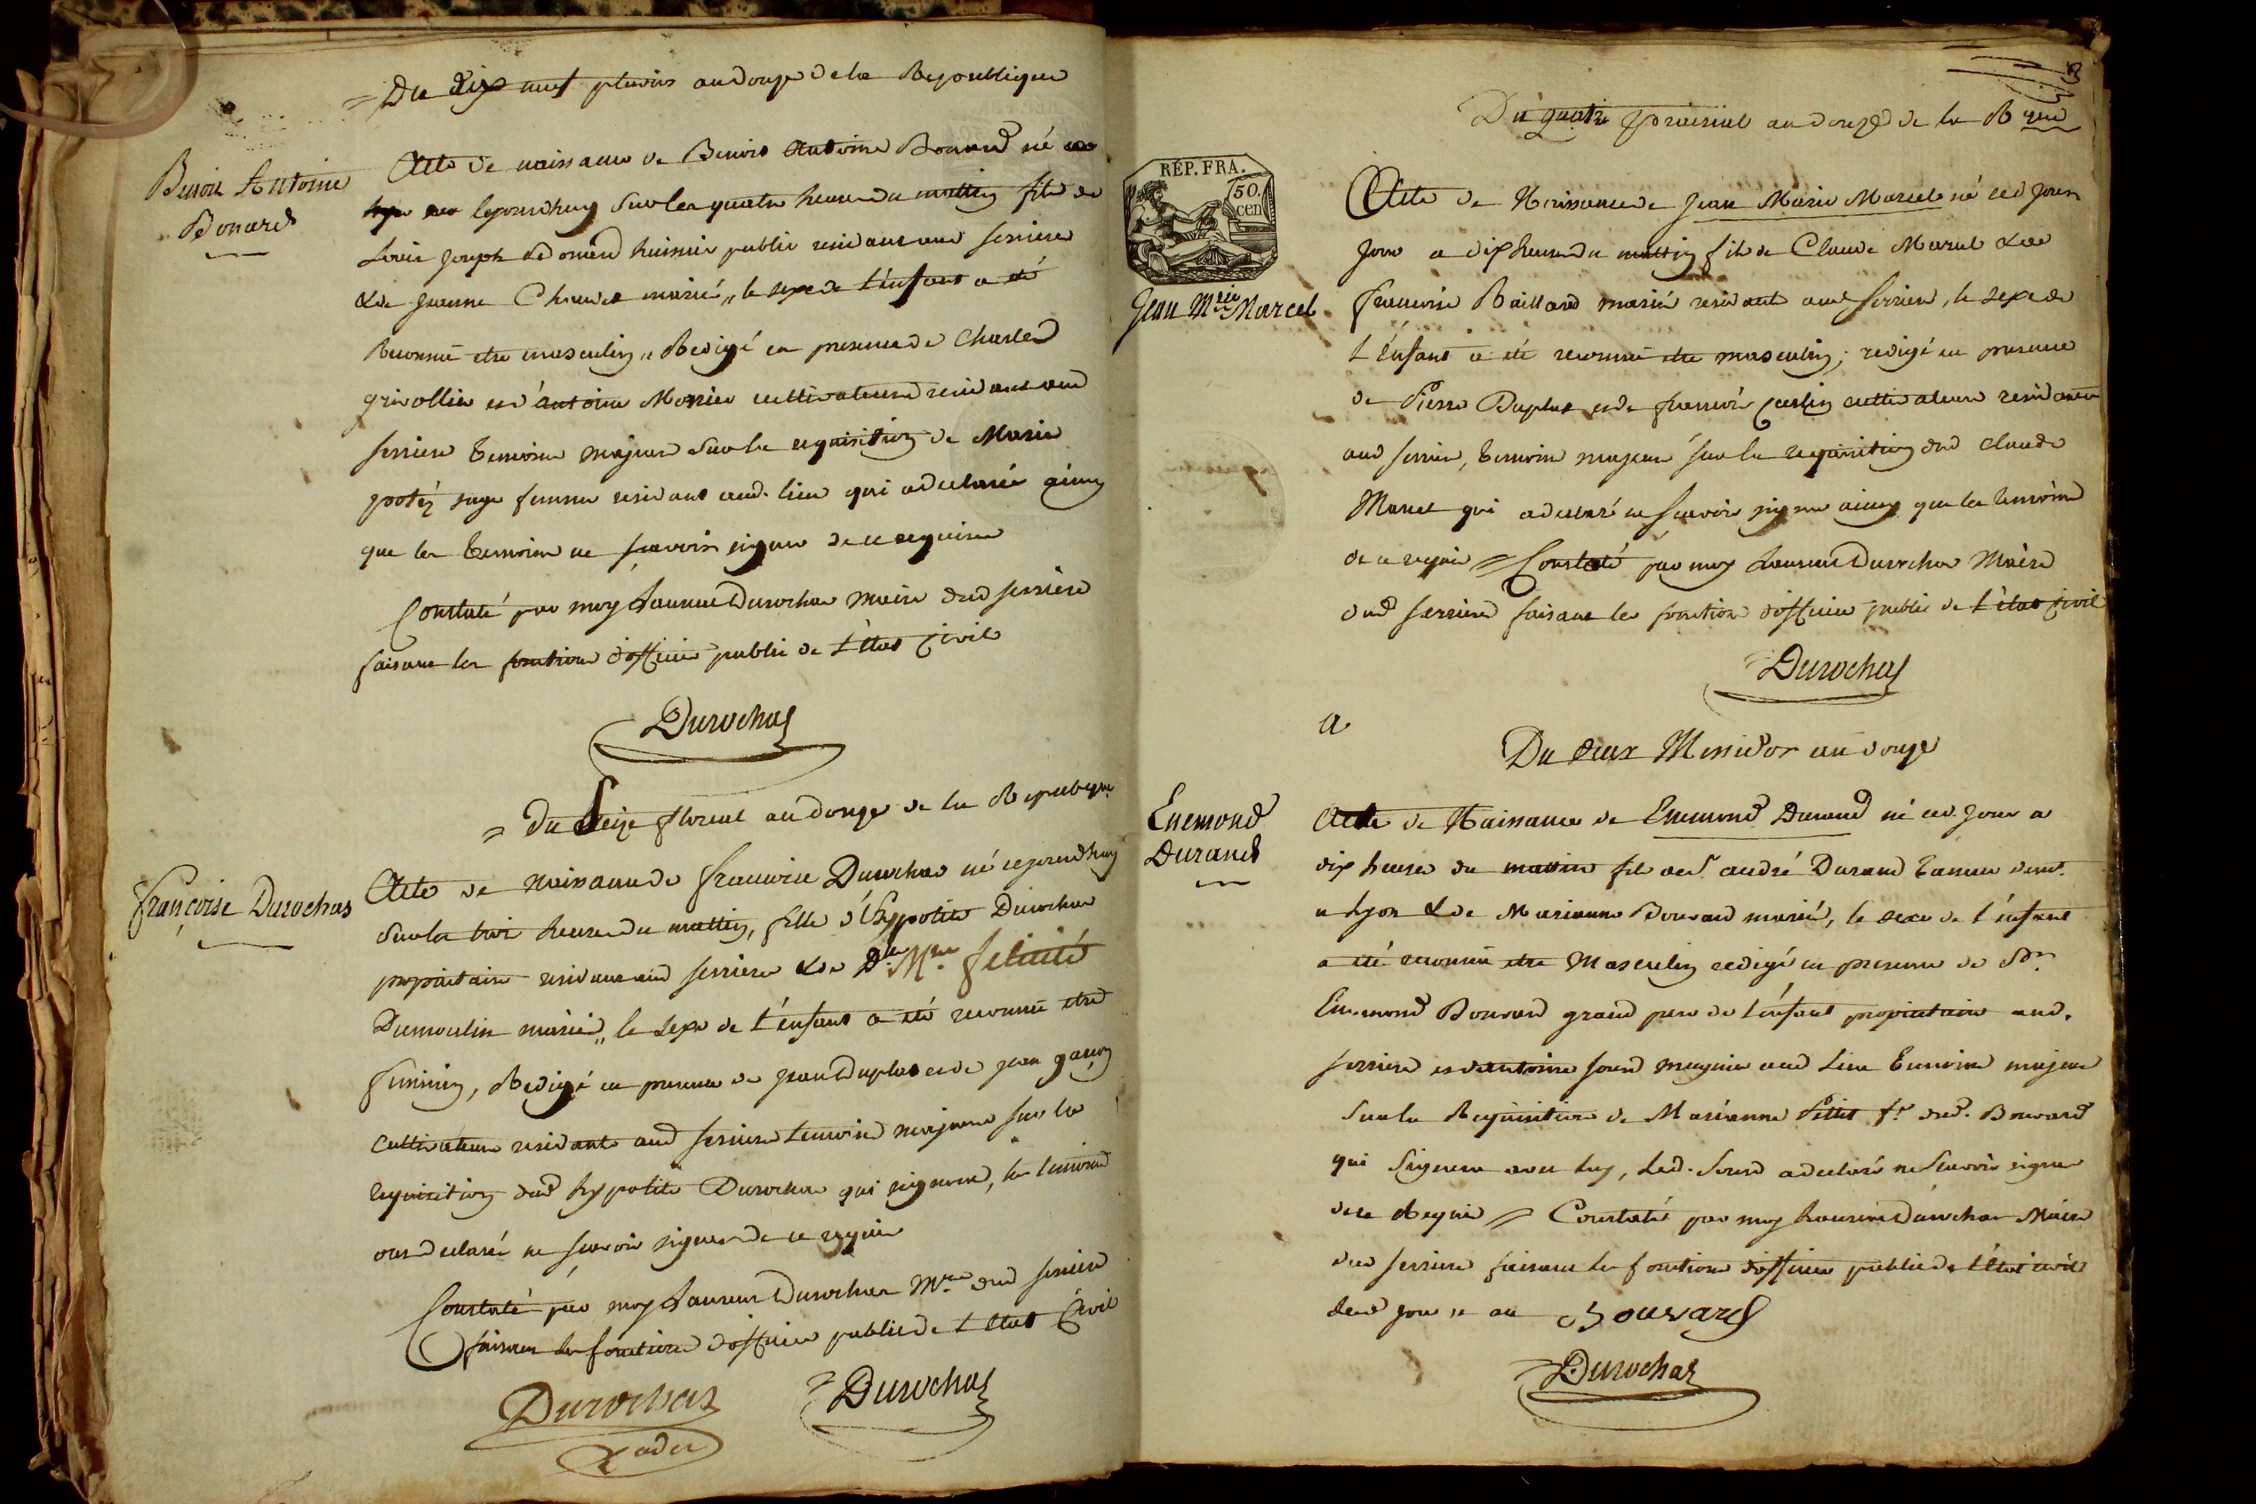 Du dix neuf pluvios an douze de la Republique
Benoit Antoine
Bonard
Acte de naissance de Benoit Antoine Bonard né
lejourdhuy sur les quatre heure du mattin fils de
Louis Joseph Bonard huissier public residant aud serriere
& de jeanne Claudet mariés, le sexe de l'enfant a été
Reconnu etre masculin, Redigé en presence de Charles
grivollier et d'antoine Monier cultivateurs residants aud
serriere temoins majeurs sur la requisition de Marie
sage femme residant aud. lieu qui a declaré ainsy
que les temoins ne scavoir signer de ce requis
Constaté par moy Laurent Durochas maire dud serriere
faisant les fonctions d'officier public de l'état Civil
Durochas
Du Seize floreal an douze de la Republique
françoise Durochas
Acte de naissance de francoise Durochas né cejourdhuy
sur les trois heures du mattin, fille d'hyppolite Durochas
proprietaire residant aud serriere & de Dle Mrie felicité
Dumoulin mariés, le sexe de l'enfant a été reconnu etre
feminin, Redigé en presence de jean Duplat et de jean
cultivateurs residants aud serriere temoins majeurs sur la
requisition dud hypolite Durochas qui signera, les temoins
ont declaré ne scavoir signer de ce requis
Constaté par moy Laurent Durochas Mre dud serriere
faisant les fonctions d'officier public de l'etat Civil
Durochas
Durochas
3
Du quatre prairial an douze de la Rque
RÉP. FRA.
50.
cen
Jean Mrie Marcel
Acte de Naissance de Jean Marie Marcel né led jour
a dix heure du mattin fils de Claude Marcel & de
francoise Baillard mariés residants aud serriere, le sexe de
l'énfant a été reconnu etre masculin; redigé en presence
de Pierre Duplat et de francois cultivateurs residants
aud serriere, temoins majeurs sur la requisition dud Claude
Marcel qui a declaré ne scavoir signer ainsy que les temoins
de ce requis Constaté par moy Laurent Durochas Maire
dud serriere faisant les fonction d'officier public de l'état Civil
Durochas
a
Du deux Messidor an douze
Enemond
Durand
Acte de Naissance de Enemond Durand né led. jour a
dix heures du mattin fils de Sr andré Durand
a Lyon & de Marianne Bouvard mariés, le sexe de l'énfant
a été reconnu etre Masculin redigé en presence de Sr.
Enemond Bouvard grand pere de l'énfant propriétaire aud.
serriere et d'antoine sourd aud Lieu temoins majeurs
sur la Requisition de Marianne Petit fe dud. Bouvard
qui Signera avec luy, led. Sourd a declaré ne Scavoir signer
de ce Requis Constaté par moy Laurent Durochas Maire
dud serriere faisant les fonctions d'officier public de l'état civil
Bouvard
Durochas